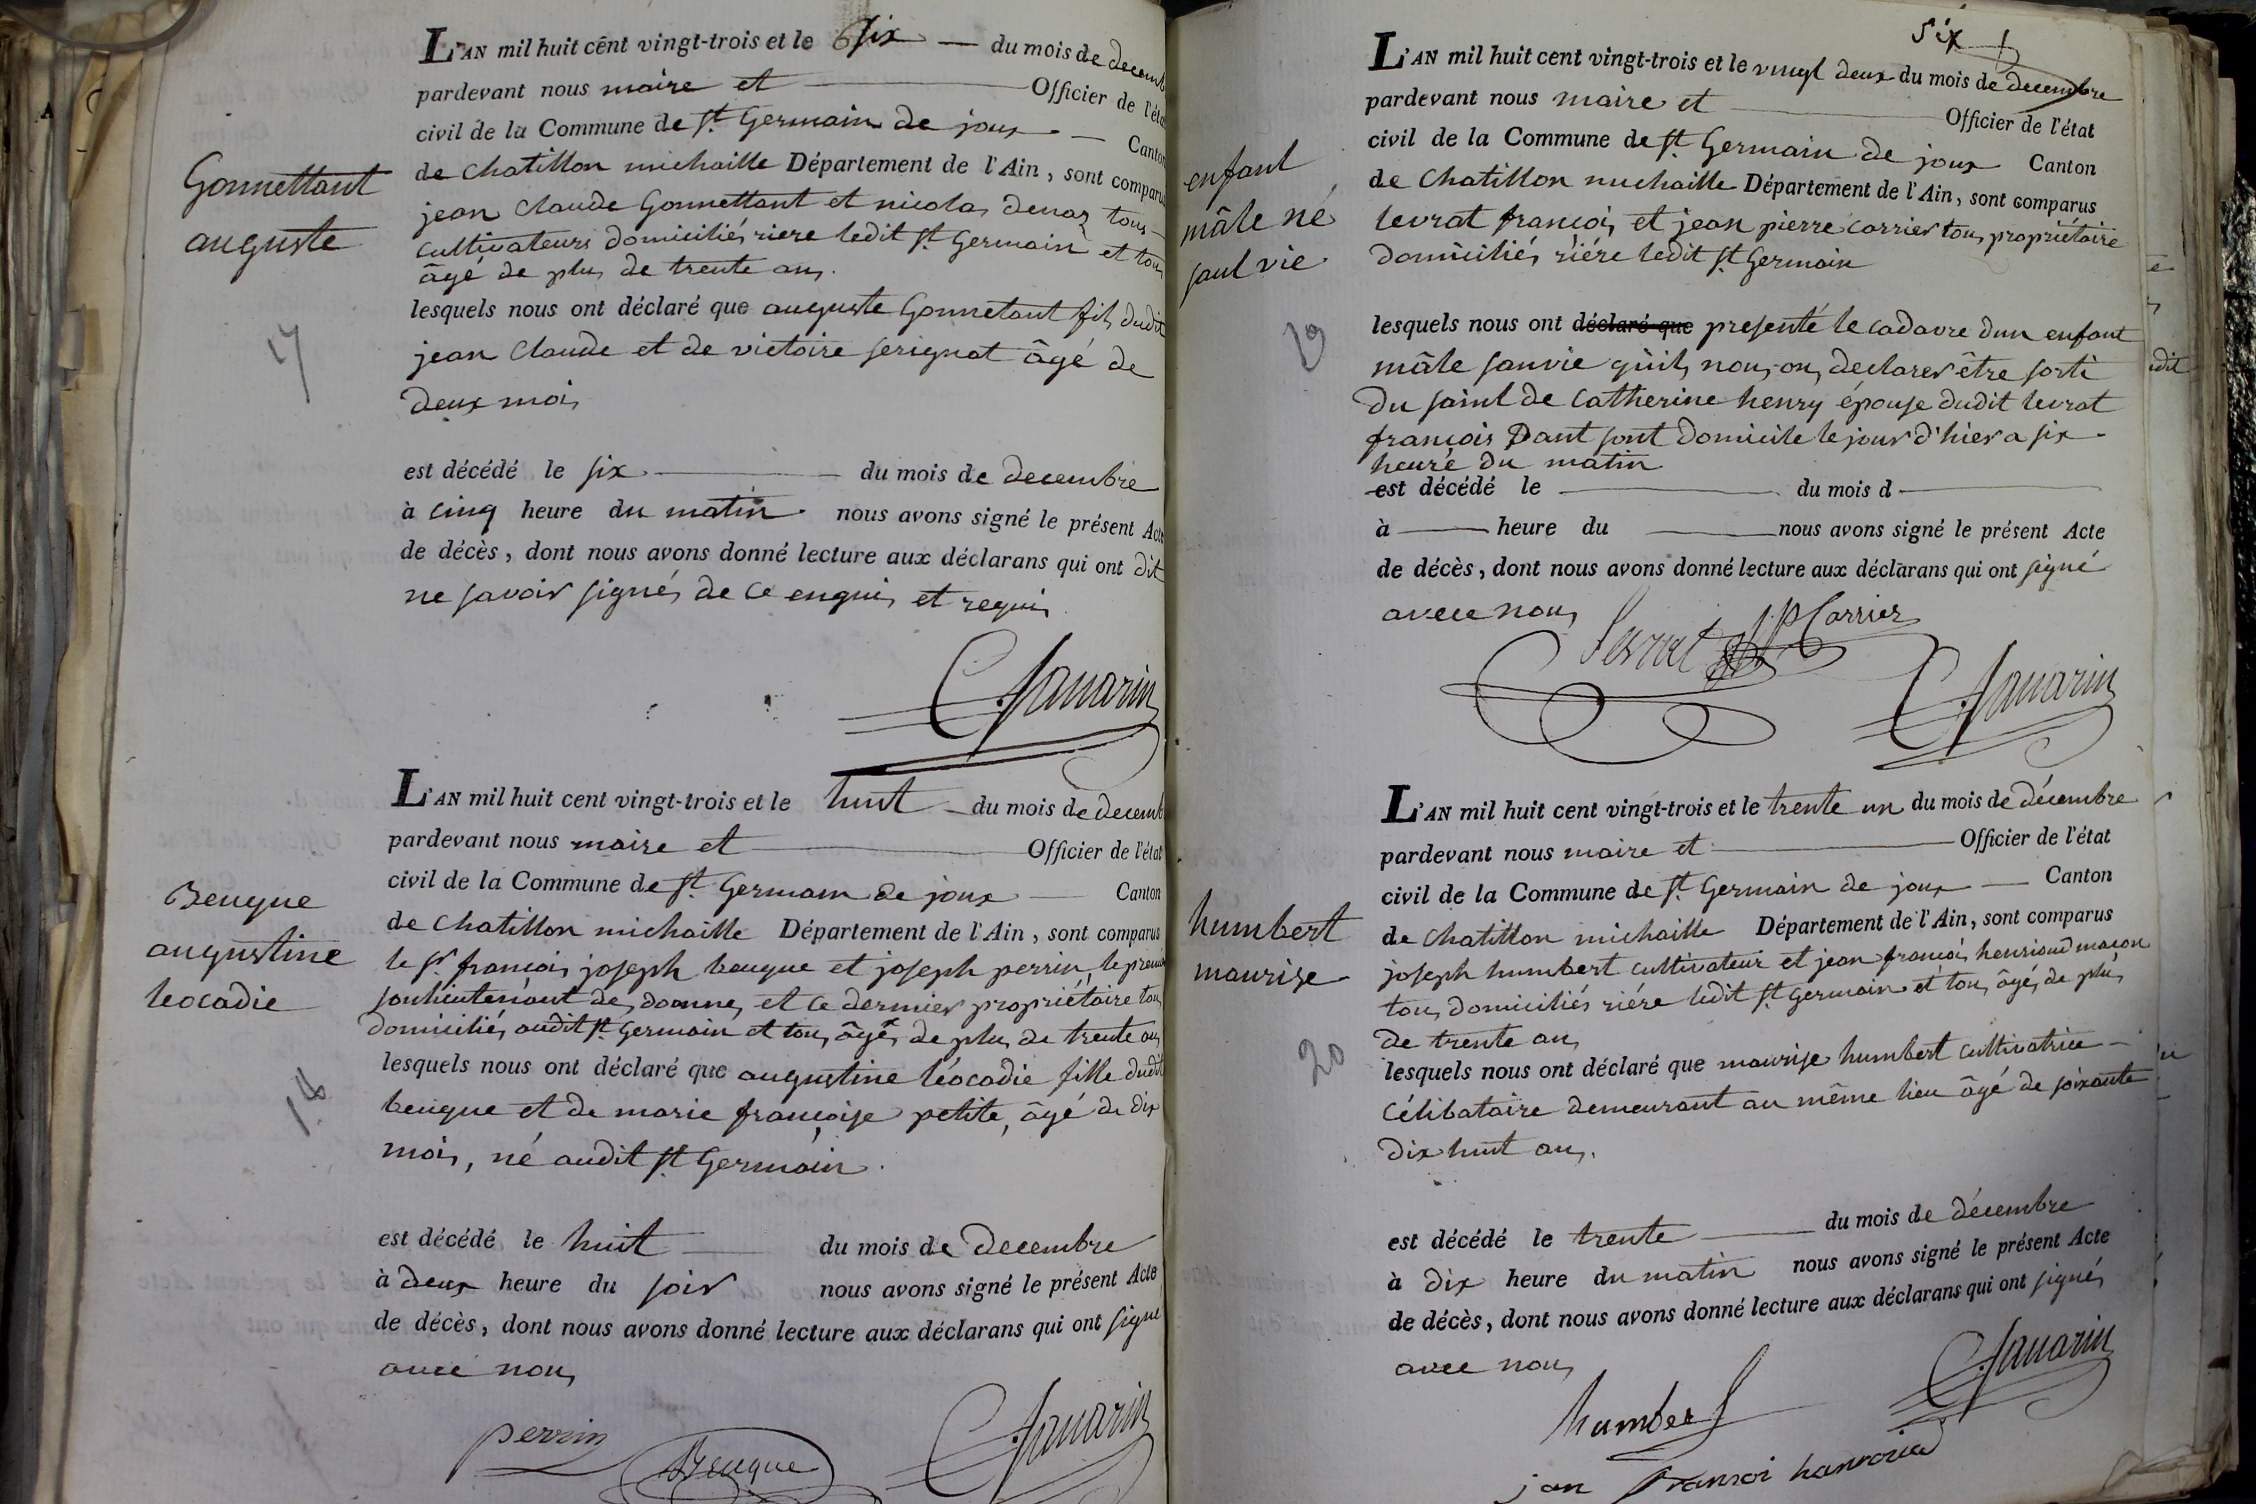 L'AN mil huit cent vingt-trois et le six du mois de decemb
pardevant nous maire et Officier de l'éta
civil de la Commune de St Germain de joux Canton
de Chatillon michaille Département de l'Ain, sont comparus
Gonnettant
auguste
jean Claude Gonnettant et nicolas denaz tous
cultivateurs domiciliés riere ledit St Germain et tous
âgé de plus de trente ans.
lesquels nous ont déclaré que auguste Gonnetant fils dudit
17
jean Claude et de victoire serignat âgé de
deux mois
est décédé le six du mois de decembre
à cinq heure du matin. nous avons signé le présent Acte
de décès, dont nous avons donné lecture aux déclarans qui ont dit
ne savoir signés de ce enquis et requis
C. Savarin
L'AN mil huit cent vingt-trois et le huit du mois de decemb
pardevant nous maire et Officier de l'état
civil de la Commune de St Germain de joux Canton
Beuque
augustine
leocadie
de Chatillon michaille Département de l'Ain, sont comparus
le Sr françois joseph beuque et joseph perrin, le premier
souslieutenant des douanes et ce dernier propriétaire tous
domiciliés audit St Germain et tous âgés de plus de trente ans
lesquels nous ont déclaré que augustine léocadie fille dudit
18
beuque et de marie françoise petite, âgé de dix
mois, né audit St Germain.
est décédé le huit du mois de decembre
à deux heure du soir nous avons signé le présent Acte
de décès, dont nous avons donné lecture aux déclarans qui ont signé
avec nous
perrin
Beuque
C. Savarin
six
L'AN mil huit cent vingt-trois et le vingt deux du mois de decembre
pardevant nous maire et Officier de l'état
civil de la Commune de St Germain de joux Canton
enfant
mâle né
sant vie
de Chatillon michaille Département de l'Ain, sont comparus
levrat françois et jean pierre carrier tous propriétaire
domiciliés riére ledit St Germain
19
lesquels nous ont déclaré que presenté le cadavre dun enfant
mâle sanvie quils nous ons declarer être sorti
du saint de Catherine henry épouse dudit levrat
françois Dant sont domicile le jour d'hier a six
heure du matin
est décédé le du mois d
à heure du nous avons signé le présent Acte
de décès, dont nous avons donné lecture aux déclarans qui ont signé
avec nous
Levrat
JP Carrier
C. Savarin
L'AN mil huit cent vingt-trois et le trente un du mois de décembre
pardevant nous maire et Officier de l'état
civil de la Commune de St Germain de joux Canton
humbert
maurise
de Chatillon michaille Département de l'Ain, sont comparus
joseph humbert cultivateur et jean françois henrioud macon
tous domiciliés riére ledit St Germain et tous âgés de plus
de trente ans
20
lesquels nous ont déclaré que maurise humbert cultivatrice
célibataire demeurant au même lieu âgé de soixante
dix huit ans.
est décédé le trente du mois de décembre
à dix heure du matin nous avons signé le présent Acte
de décès, dont nous avons donné lecture aux déclarans qui ont signés
avec nous
C. Savarin
humbert
jan fransoi